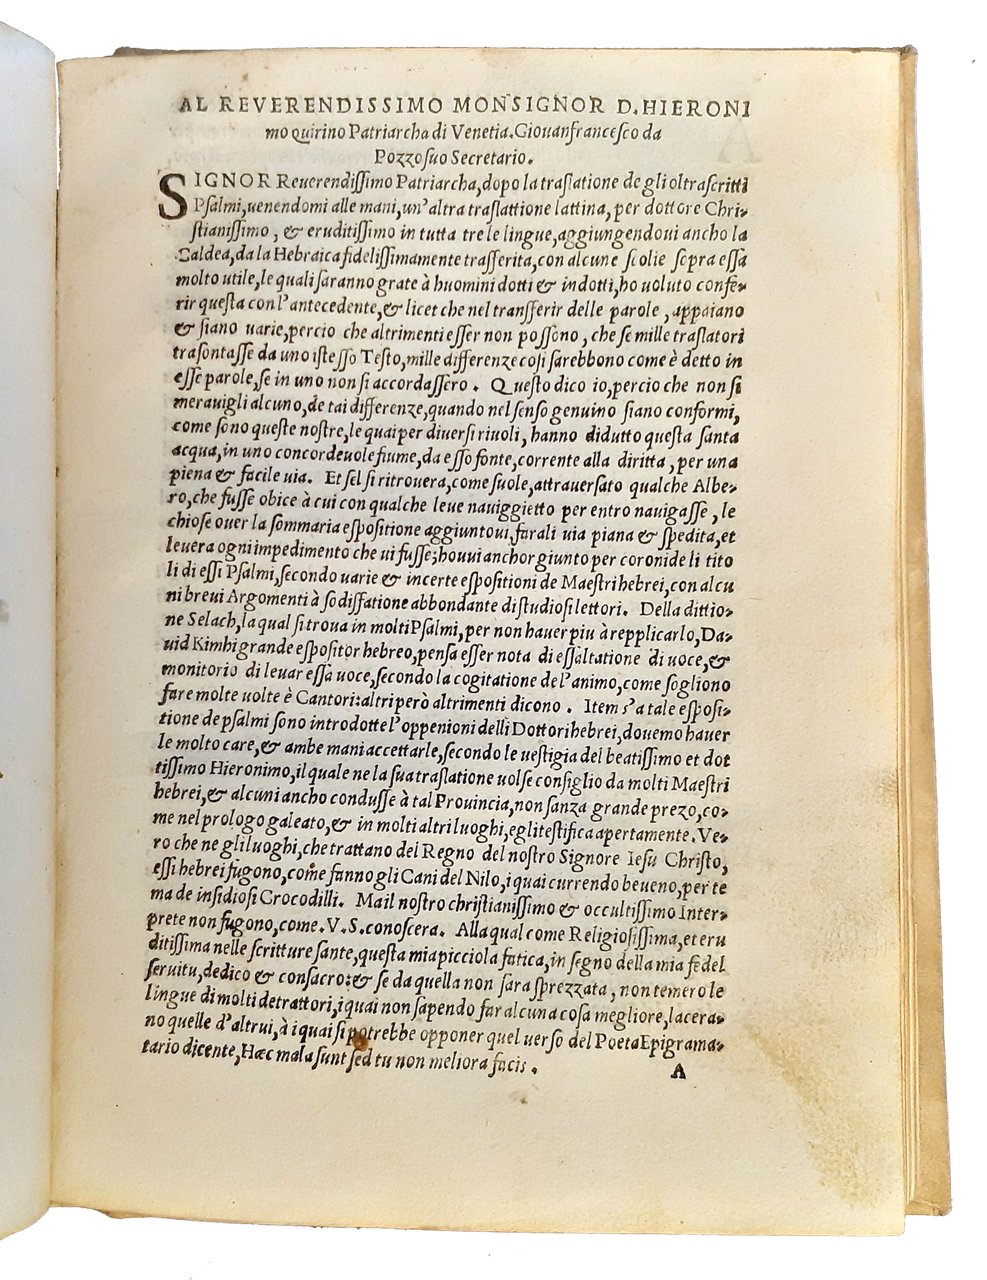 AL REVERENDISSIMO MONSIGNOR D. HIERONI
mo quirino Patriarcha di Venetia. Giouanfrancesco da
Pozzo suo Secretario.
SIGNOR Reuerendissimo Patriarcha, dopo la traslatione de gli oltrascritti
Psalmi, uenendomi alle mani, un'altra traslattione lattina, per dottore Chri-
stianissimo, & eruditissimo in tutta tre le lingue, aggiungendoui ancho la
Caldea, da la Hebraica fidelissimamente trasferita, con alcune scolie sopra essa
molto utile, le quali saranno grate à huomini dotti & indotti, ho uoluto confe-
rir questa con l'antecedente, & licet che nel transferir delle parole, appaiano
& siano uarie, percio che altrimenti esser non possono, che se mille traslatori
trasontasse da uno istesso Testo, mille differenze cosi sarebbono come è detto in
esse parole, se in uno non si accordassero. Questo dico io, percio che non si
merauigli alcuno, de tai differenze, quando nel senso genuino siano conformi,
come sono queste nostre, le quai per diuersi riuoli, hanno didutto questa santa
acqua, in uno concordeuole fiume, da esso fonte, corrente alla diritta, per una
piena & facile uia. Et sel si ritrouera, come suole, attrauersato qualche Albe-
ro, che fusse obice à cui con qualche leue nauiggietto per entro nauigasse, le
chiose ouer la sommaria espositione aggiuntoui, farali uia piana & spedita, et
leuera ogni impedimento che ui fusse; houui anchor giunto per coronide li tito
li di essi Psalmi, secondo uarie & incerte espositioni de Maestri hebrei, con alcu
ni breui Argomenti à sodisfatione abbondante di studiosi lettori. Della dittio-
ne Selach, la qual si troua in molti Psalmi, per non hauer piu à repplicarlo, Da-
uid Kimhi grande espositor hebreo, pensa esser nota di essaltatione di uoce, &
monitorio di leuar essa uoce, secondo la cogitatione de l'animo, come sogliono
fare molte uolte è Cantori: altri però altrimenti dicono. Item s'a tale esposi-
tione de psalmi sono introdotte l'oppenioni delli Dottori hebrei, douemo hauer
le molto care, & ambe mani accettarle, secondo le uestigia del beatissimo et dot
tissimo Hieronimo, il quale ne la sua traslatione uolse consiglio da molti Maestri
hebrei, & alcuni ancho condusse à tal Prouincia, non sanza grande prezo, co-
me nel prologo galeato, & in molti altri luoghi, egli testifica apertamente. Ve-
ro che ne gli luoghi, che trattano del Regno del nostro Signore Iesu Christo,
essi hebrei fugono, come fanno gli Cani del Nilo, i quai currendo beueno, per te
ma de insidiosi Crocodilli. Ma il nostro christianissimo & occultissimo Inter-
prete non fugono, come. V. S. conoscera. Alla qual come Religiosissima, et eru
ditissima nelle scritture sante, questa mia picciola fatica, in segno della mia fedel
seruitu, dedico & consacro: & se da quella non sara sprezzata, non temero le
lingue di molti detrattori, i quai non sapendo far alcuna cosa megliore, lacera-
no quelle d'altrui, à i quai si potrebbe opponer quel uerso del Poeta Epigrama-
tario dicente, Hæc mala sunt sed tu non meliora facis.
A